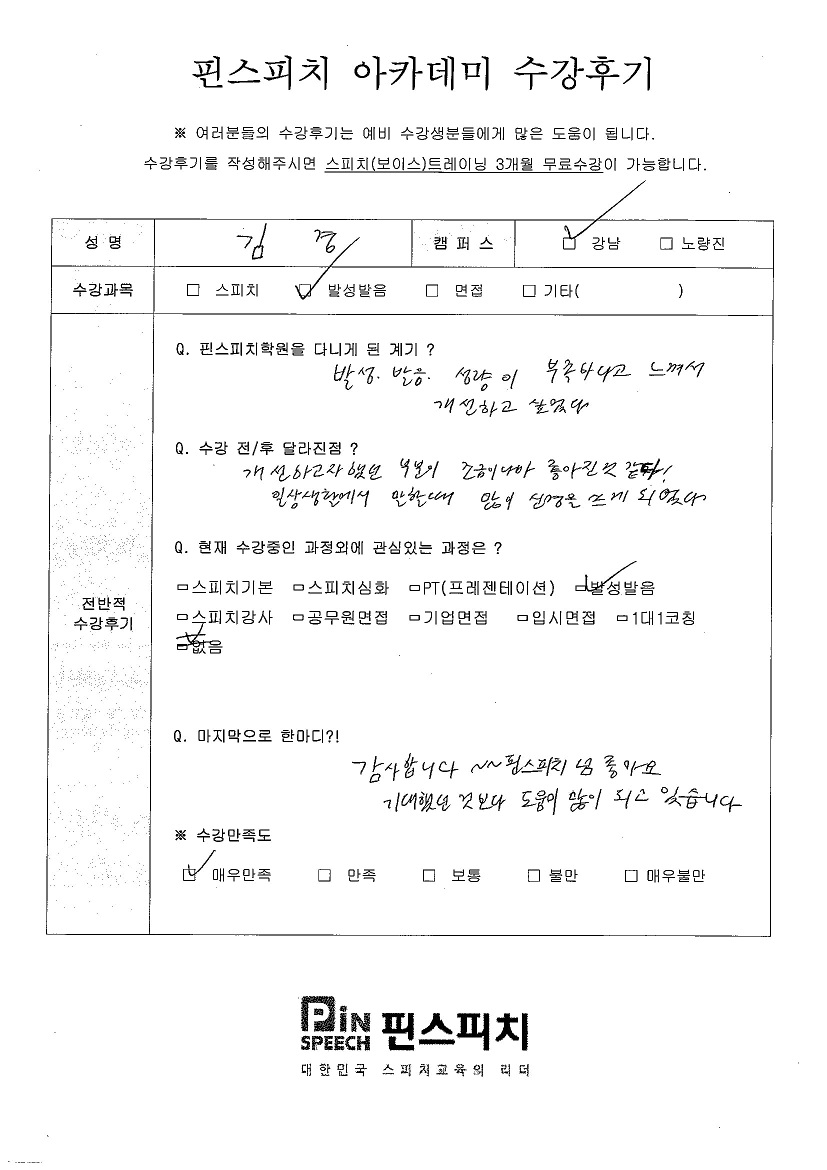 핀스피치 아카데미 수강후기
※ 여러분들의 수강후기는 예비 수강생분들에게 많은 도움이 됩니다.
수강후기를 작성해주시면 스피치(보이스)트레이닝 3개월 무료수강이 가능합니다.
성 명 김 경 캠 퍼 스 □ 강남 □ 노량진
수강과목 □ 스피치 □ 발성발음 □ 면접 □ 기타( )
Q. 핀스피치학원을 다니게 된 계기 ?
발성. 발음. 성량이 부족하다고 느껴서
개선하고 싶었다
Q. 수강 전/후 달라진점 ?
개선하고자 했던 부분이 조금이나마 좋아진것 같다!
일상생활에서 말할때 많이 신경을 쓰게 되었다
Q. 현재 수강중인 과정외에 관심있는 과정은 ?
□스피치기본 □스피치심화 □PT(프레젠테이션) □발성발음
전반적
수강후기
□스피치강사 □공무원면접 □기업면접 □입시면접 □1대1코칭
□없음
Q. 마지막으로 한마디?!
감사합니다 ~~핀스피치 넘 좋아요
기대했던 것보다 도움이 많이 되고 있습니다
※ 수강만족도
□ 매우만족 □ 만족 □ 보통 □ 불만 □ 매우불만
PiN SPEECH 핀스피치
대한민국 스피치교육의 리더